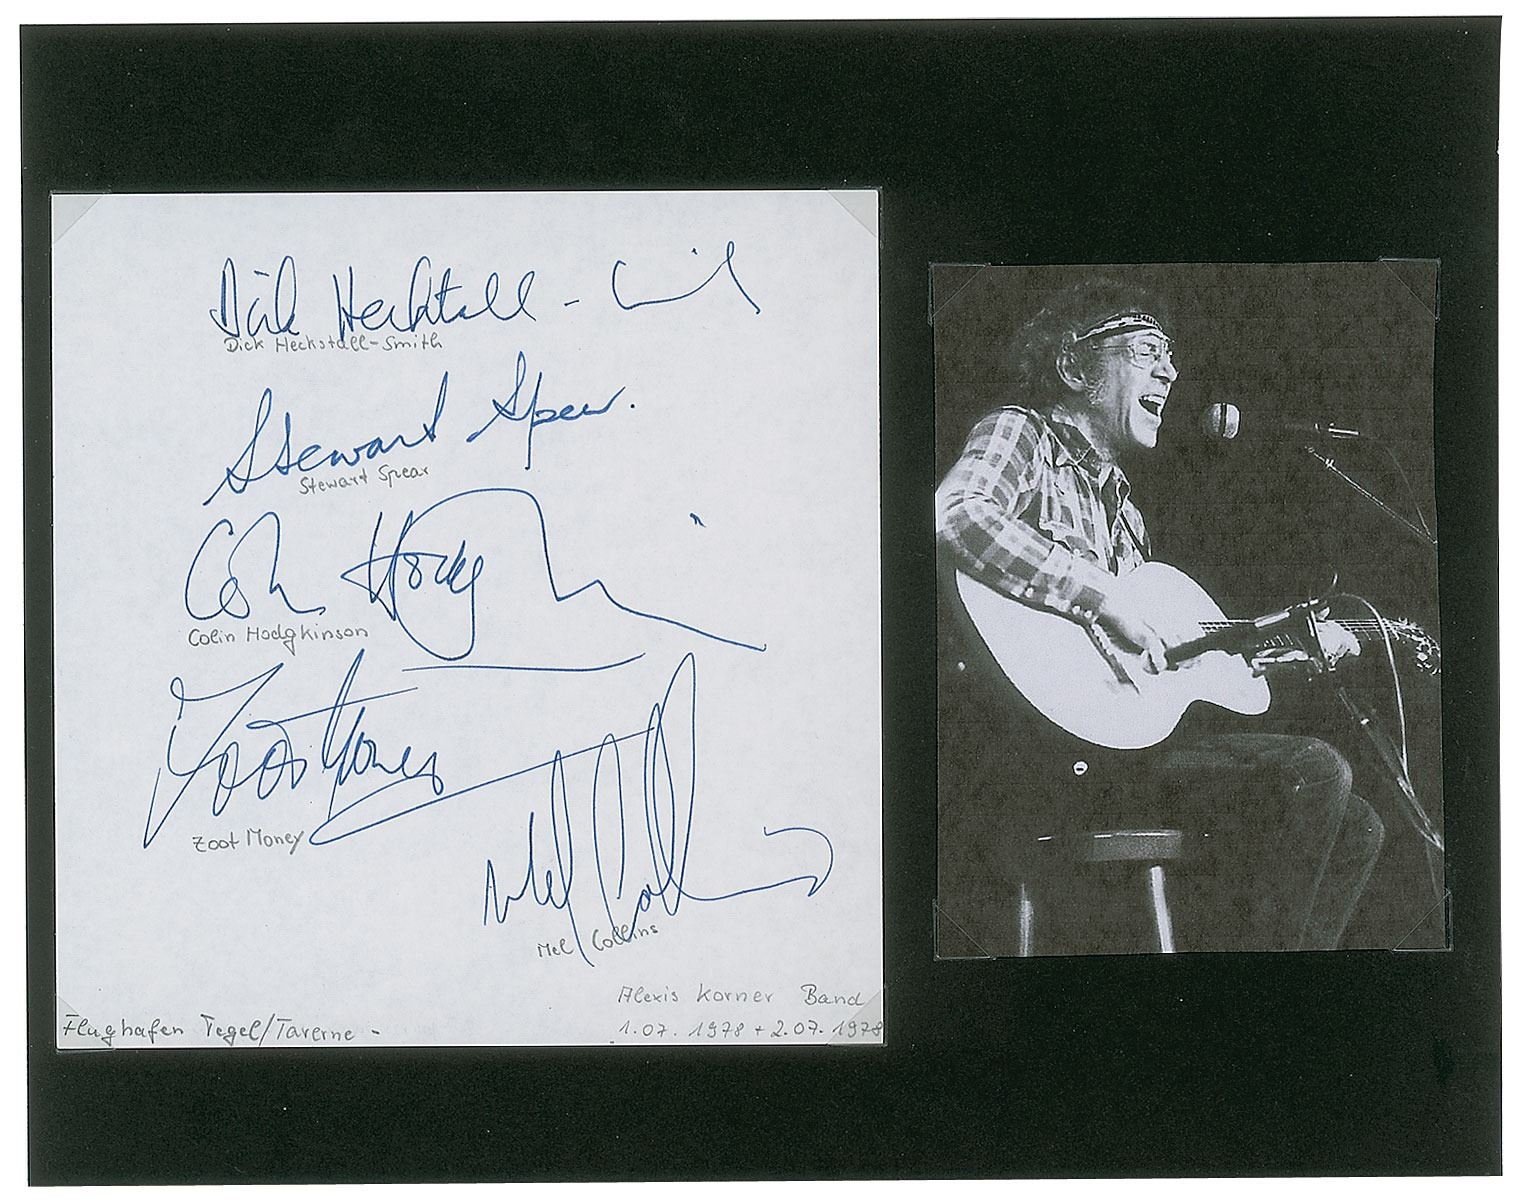 Dick Heckstall-Smith
Dick Heckstall-Smith
Stewart Spear.
Stewart Spear
Colin Hodgkinson
Colin Hodgkinson
Zoot Money
Zoot Money
Mel Collins
Mel Collins
Alexis Korner Band
Flughafen Tegel/Taverne - 1.07.1978 + 2.07.1978